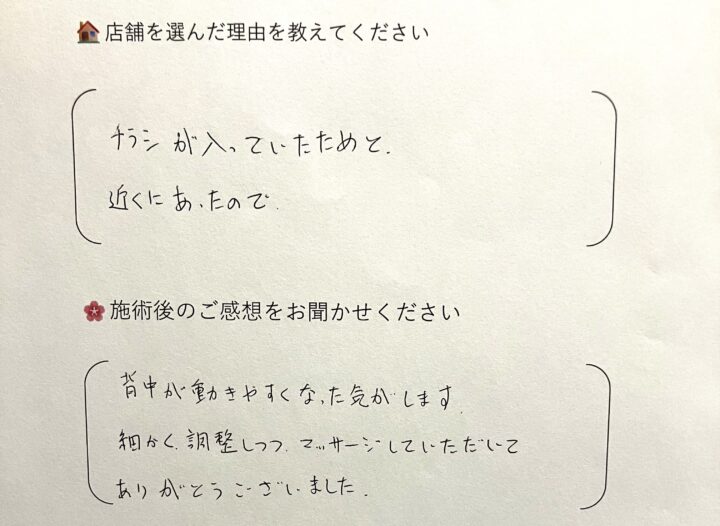 店舗を選んだ理由を教えてください
チラシが入っていたためと、
近くにあったので。
施術後のご感想をお聞かせください
背中が動きやすくなった気がします。
細かく、調整しつつ、マッサージしていただいて
ありがとうございました。